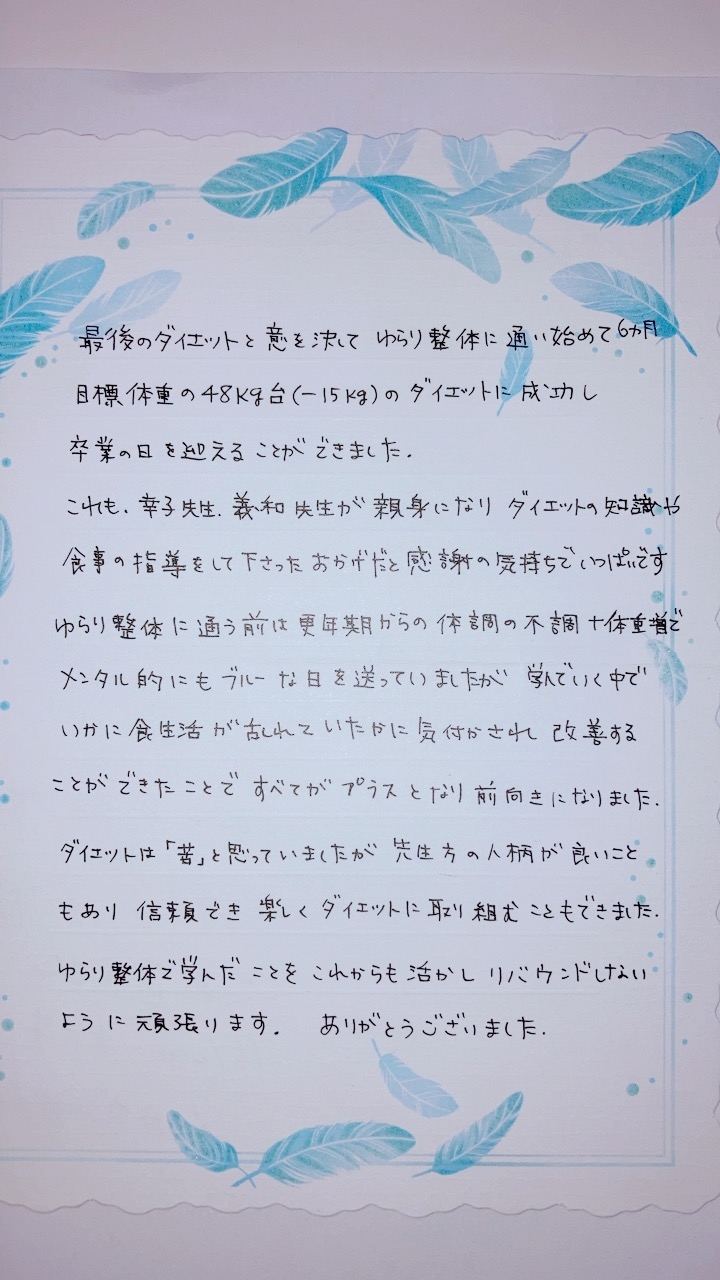 最後のダイエットと意を決して ゆらり整体に通い始めて6ヵ月
目標体重の48Kg台(-15kg)のダイエットに成功し
卒業の日を迎えることができました.
これも、幸子先生、義和先生が親身になり ダイエットの知識や
食事の指導をして下さったおかげだと感謝の気持ちでいっぱいです
ゆらり整体に通う前は更年期からの体調の不調+体重増で
メンタル的にもブルーな日を送っていましたが 学んでいく中で
いかに食生活が乱れていたかに気付かされ 改善する
ことができたことで すべてがプラスとなり前向きになりました.
ダイエットは「苦」と思っていましたが 先生方の人柄が良いこと
もあり 信頼でき 楽しくダイエットに取り組むこともできました.
ゆらり整体で学んだことを これからも活かし リバウンドしない
ように頑張ります. ありがとうございました.